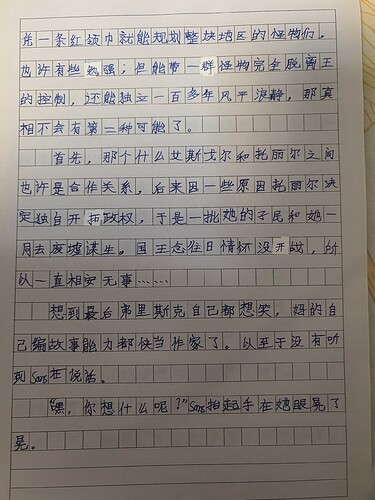 凭一条红领巾就能规划整块地区的怪物们，
也许有些勉强；但能带一群怪物完全脱离王
的控制，还能独立一百多年风平浪静，那真
相不会有第二种可能了。
首先，那个什么艾斯戈尔和托丽尔之间
也许是合作关系，后来因一些原因托丽尔决
定独自开拓政权，于是一批她的子民和她一
同去废墟谋生。国王念往日情怀没开战，所
以一直相安无事……
想到最后弗里斯克自己都想笑，妈的自
己编故事能力都快当作家了。以至于没有听
到Sans在说话。
“嘿，你想什么呢？”Sans抬起手在她眼晃了
晃。